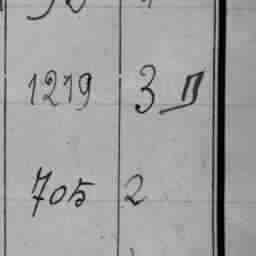 1219 3
705 2